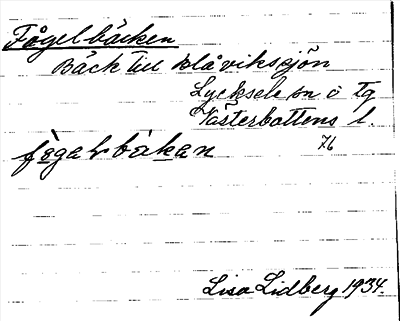 Fågelbäcken
Bäck till Blåvikssjön
Lycksele sn o tg
Västerbottens l.
76
Lisa Lidberg 1934.